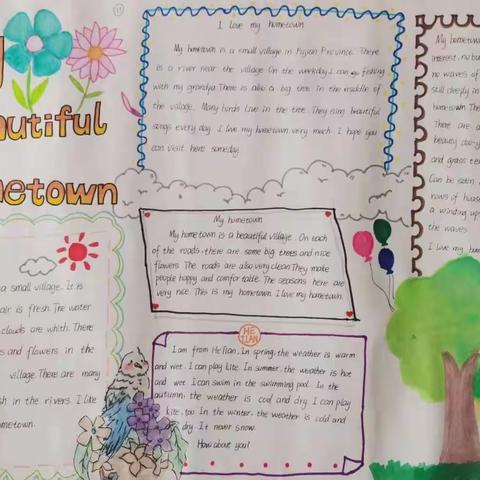 11
y
autiful
metown
I love my hometown
My hometown is a small village in Fujian Province. There
is a river near the village. On the weekday, I can go fishing
with my grandpa. There is also a big tree in the middle of
the village. Many birds live in the tree. They sing beautiful
songs every day. I love my hometown very much. I hope you
can visit here someday.
My hometown
My hometown is a beautiful village. On each
of the roads, there are some big trees and nice
flowers. The roads are also very clean. They make
people happy and comfortable. The seasons here are
very nice. This is my hometown. I love my hometown.
HeTIAN
I am from HeTian. In spring, the weather is warm
and wet. I can play kite. In summer, the weather is hot
and wet. I can swim in the swimming pool. In the
autumn, the weather is cool and dry. I can play
kite, too. In the winter, the weather is cold and
dry. It never snow.
How about you?
a small village. It is
air is fresh. The water
clouds are which. There
s and flowers in the
village. There are many
sh in the rivers. I like
ometown.
My hometow
interest, no bu
no waves of
still deeply in
hometown. The
There are a
beauty
and grass te
Can be
rows of house
a winding up
the waves.
I love my hom